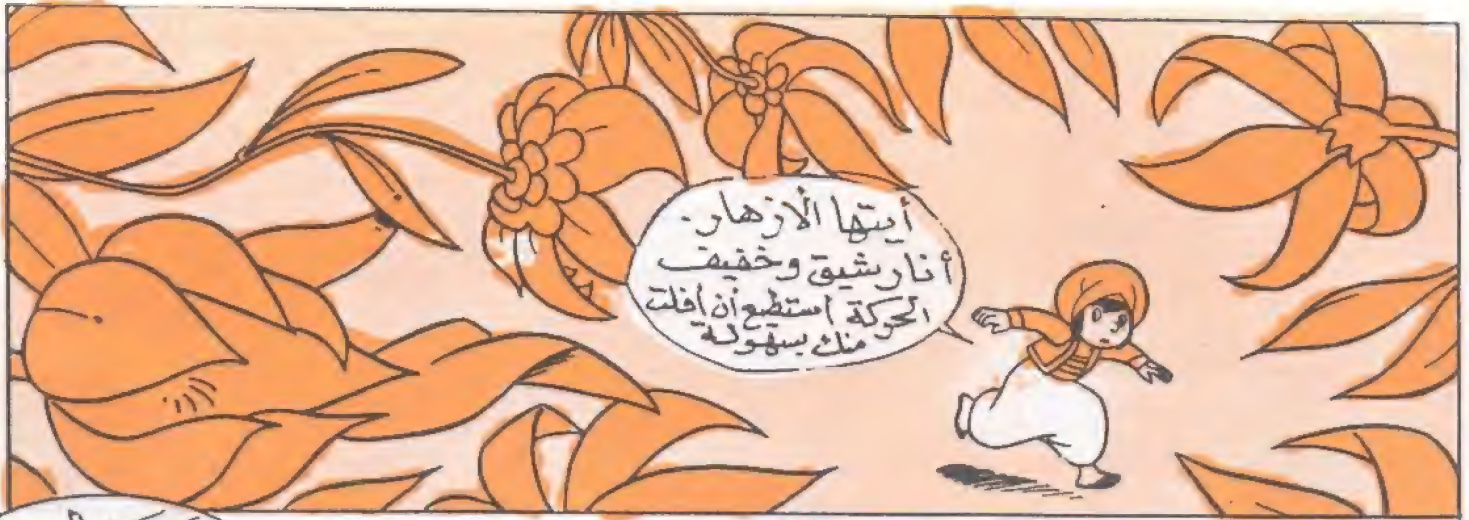 أيتها الازهار
أنا رشيق وخفيف
الحركة استطيع أن أفلت
منك بسهولة